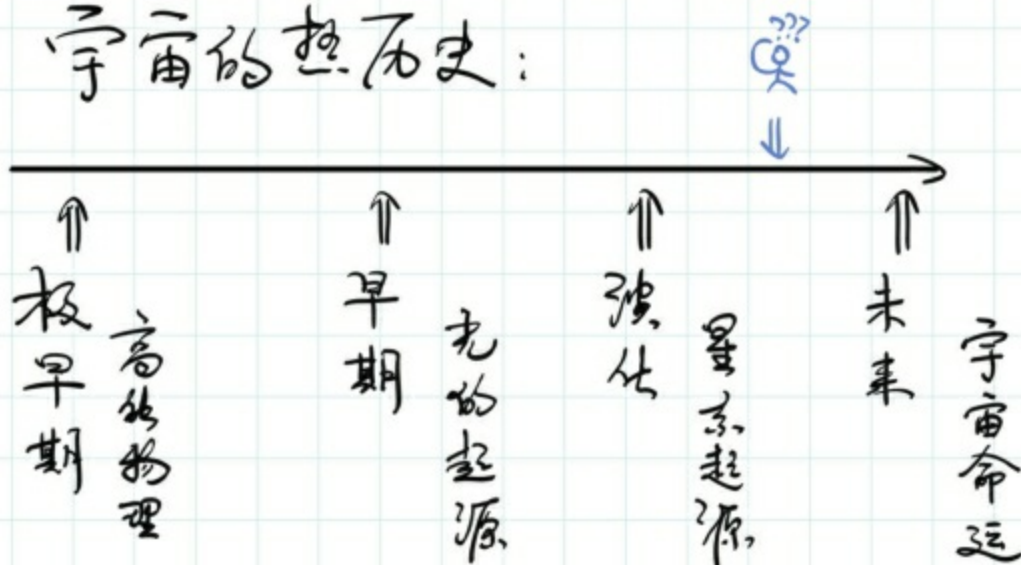 宇宙的热历史:
???
极早期
高能物理
早期
光的起源
演化
星系起源
未来
宇宙命运